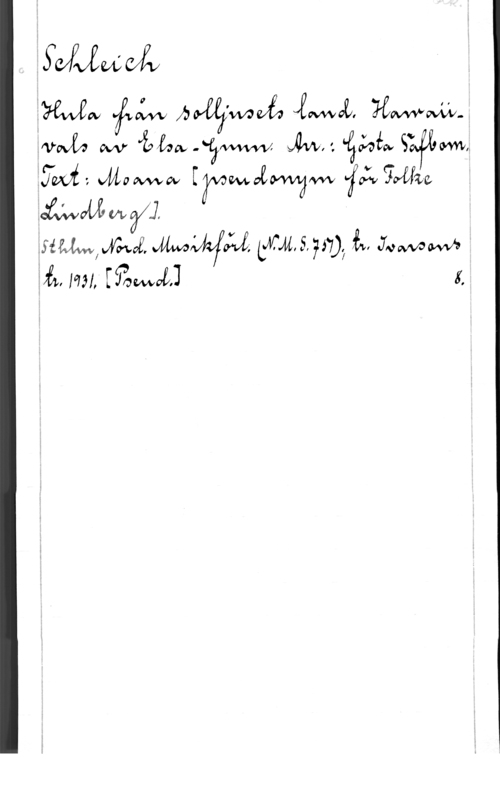 Schleich
Hula från solljusets land. Hawaii-
vals av Elsa-Gunn. Arr.: Gösta Säfbom.
Text: Moana [pseudonym för Folke
Lindberg].
Sthlm, Nord. Musikförl. (N.M.S. 757), tr. Ivarsons
tr. 1931. [Pseud.] 8.